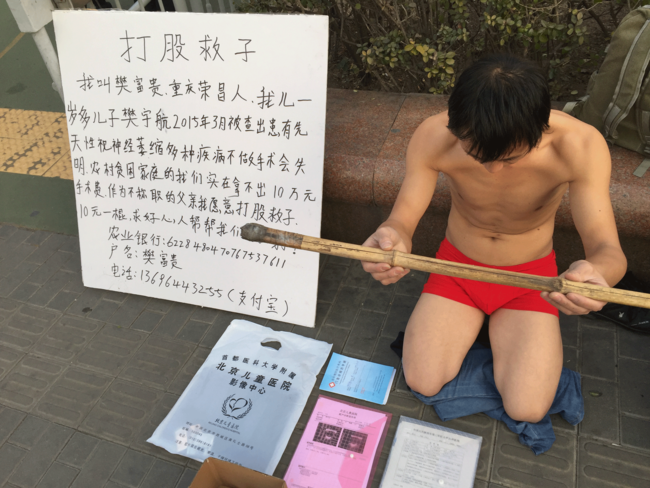 打股救子
我叫樊富贵.重庆荣昌人.我儿一
岁多儿子樊宇航2015年3月被查出患有先
天性视神经萎缩多种疾病不做手术会失
明.农村贫困家庭的我们实在拿不出10万元
手术费.作为不称职的父亲我愿意打股救子.
10元一棍.求好人,人帮帮我们
农业银行:6228480470767537611
户名:樊富贵
电话:13696443255(支付宝)
首都医科大学附属
北京儿童医院
影像中心